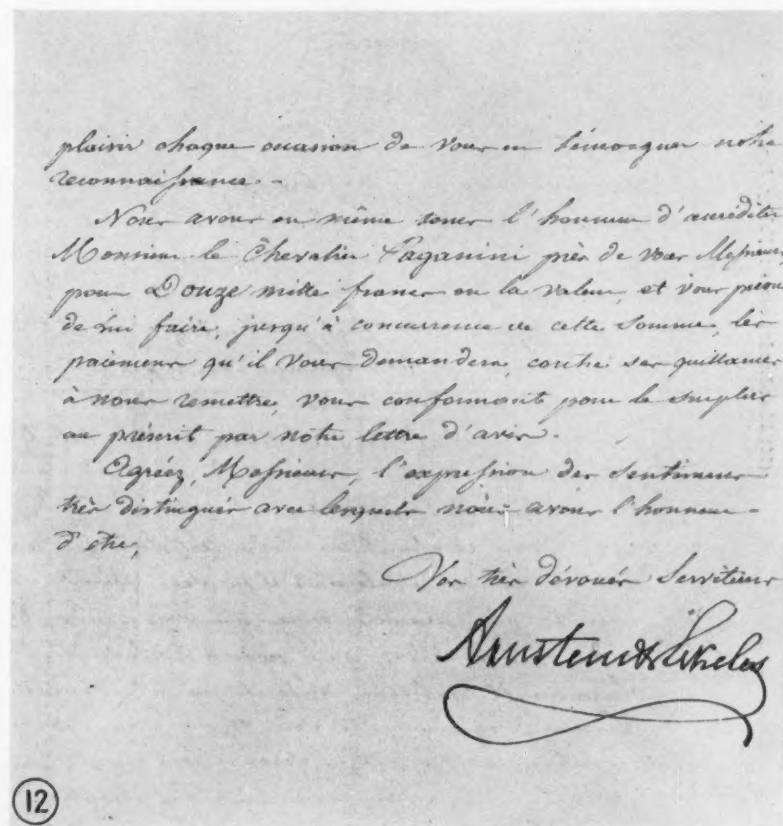 plaisir chaque occasion de vous en témoigner notre
reconnaissance.
Nous avons en même tems l'honneur d'accréditer
Monsieur le Chevalier Paganini près de vous Messieurs
pour Douze mille francs ou la valeur, et vous prions
de lui faire, jusqu'à concurrence de cette somme, les
paiemens qu'il vous demandera, contre ses quittances
à nous remettre, vous conformant pour le surplus
au préscrit par notre lettre d'avis.
Agréez, Messieurs, l'expression des sentimens
très distingués avec lesquels nous avons l'honneur
d'être,
Vos très dévoués Serviteurs
Arnstein & Eskeles
12